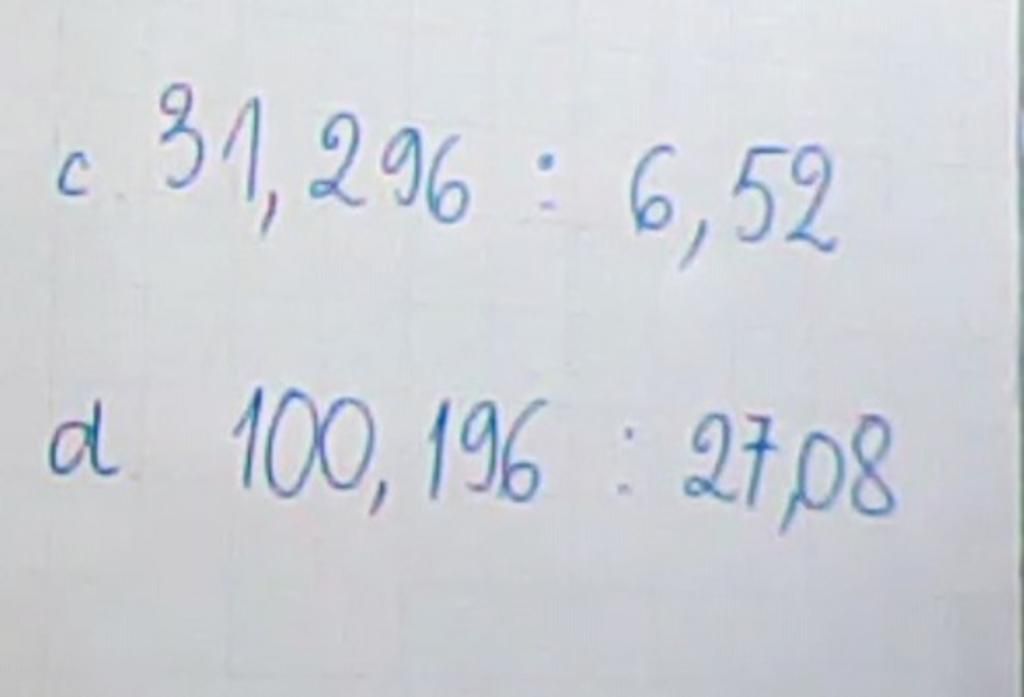 c 31,296 : 6,52
d 100,196 : 27,08